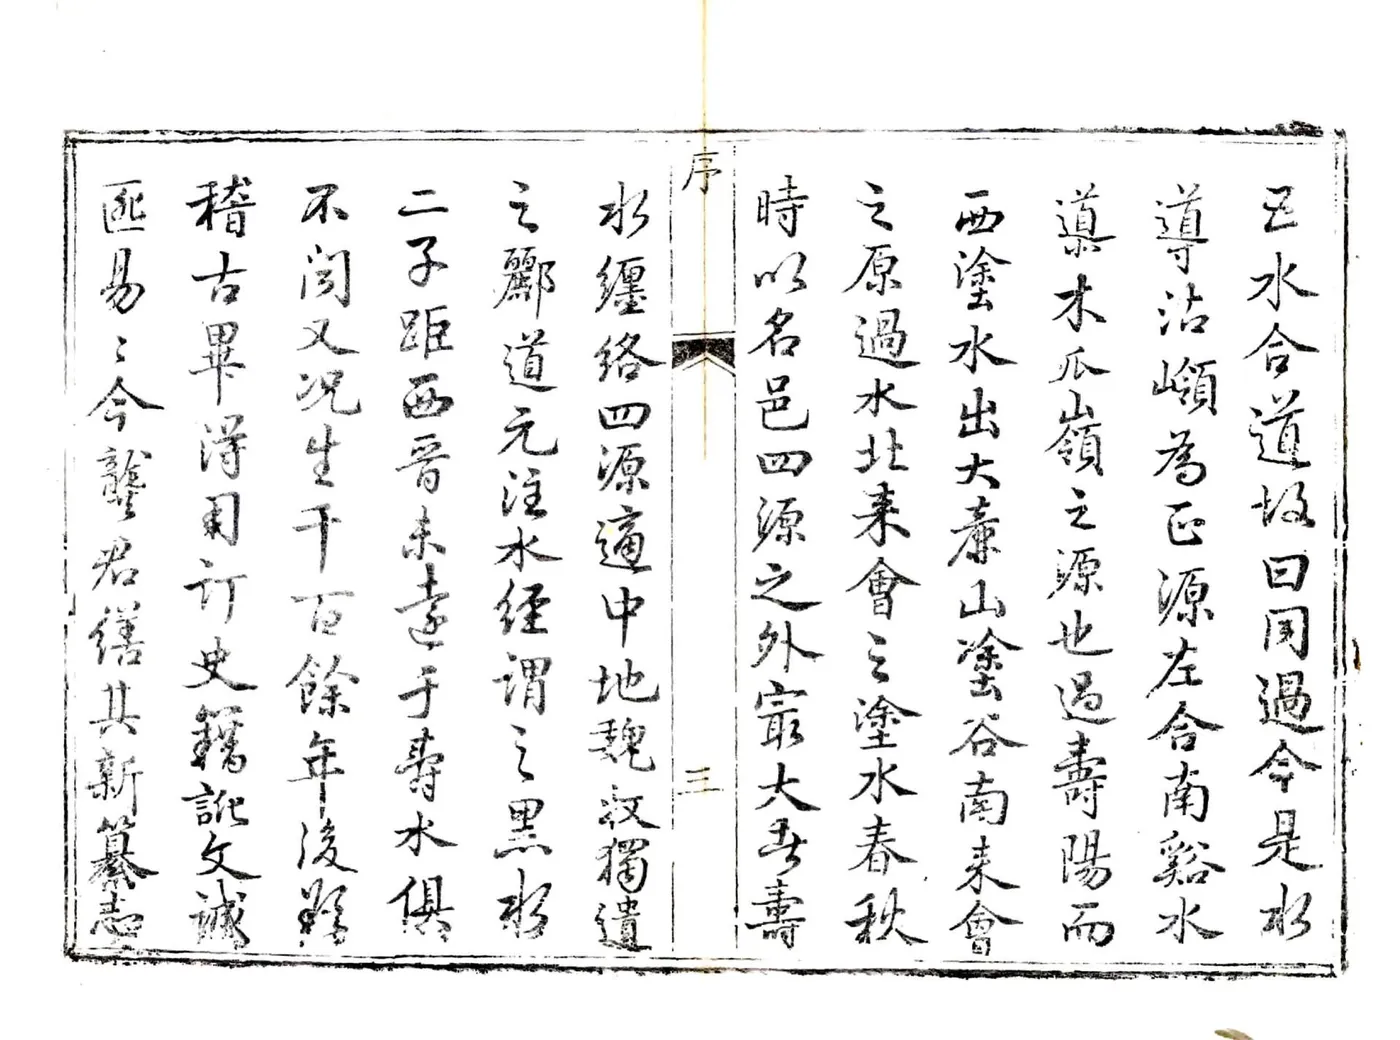 五水合道故曰同過今是水
導沾嶺為正源左合南谿水
導木瓜山嶺之源也過壽陽而
西塗水出大廉山塗谷南来會
之原過水北来會之塗水春秋
時以名邑四源之外㝡大者壽
序
三
水纏絡四源適中地魏収獨遺
之酈道元注水經謂之黑水
二子距西晉未遠于壽水俱
不闵又况生千百餘年後難
稽古畢得用訂史籍訛文誠
匪易〻今龔君繕其新纂志